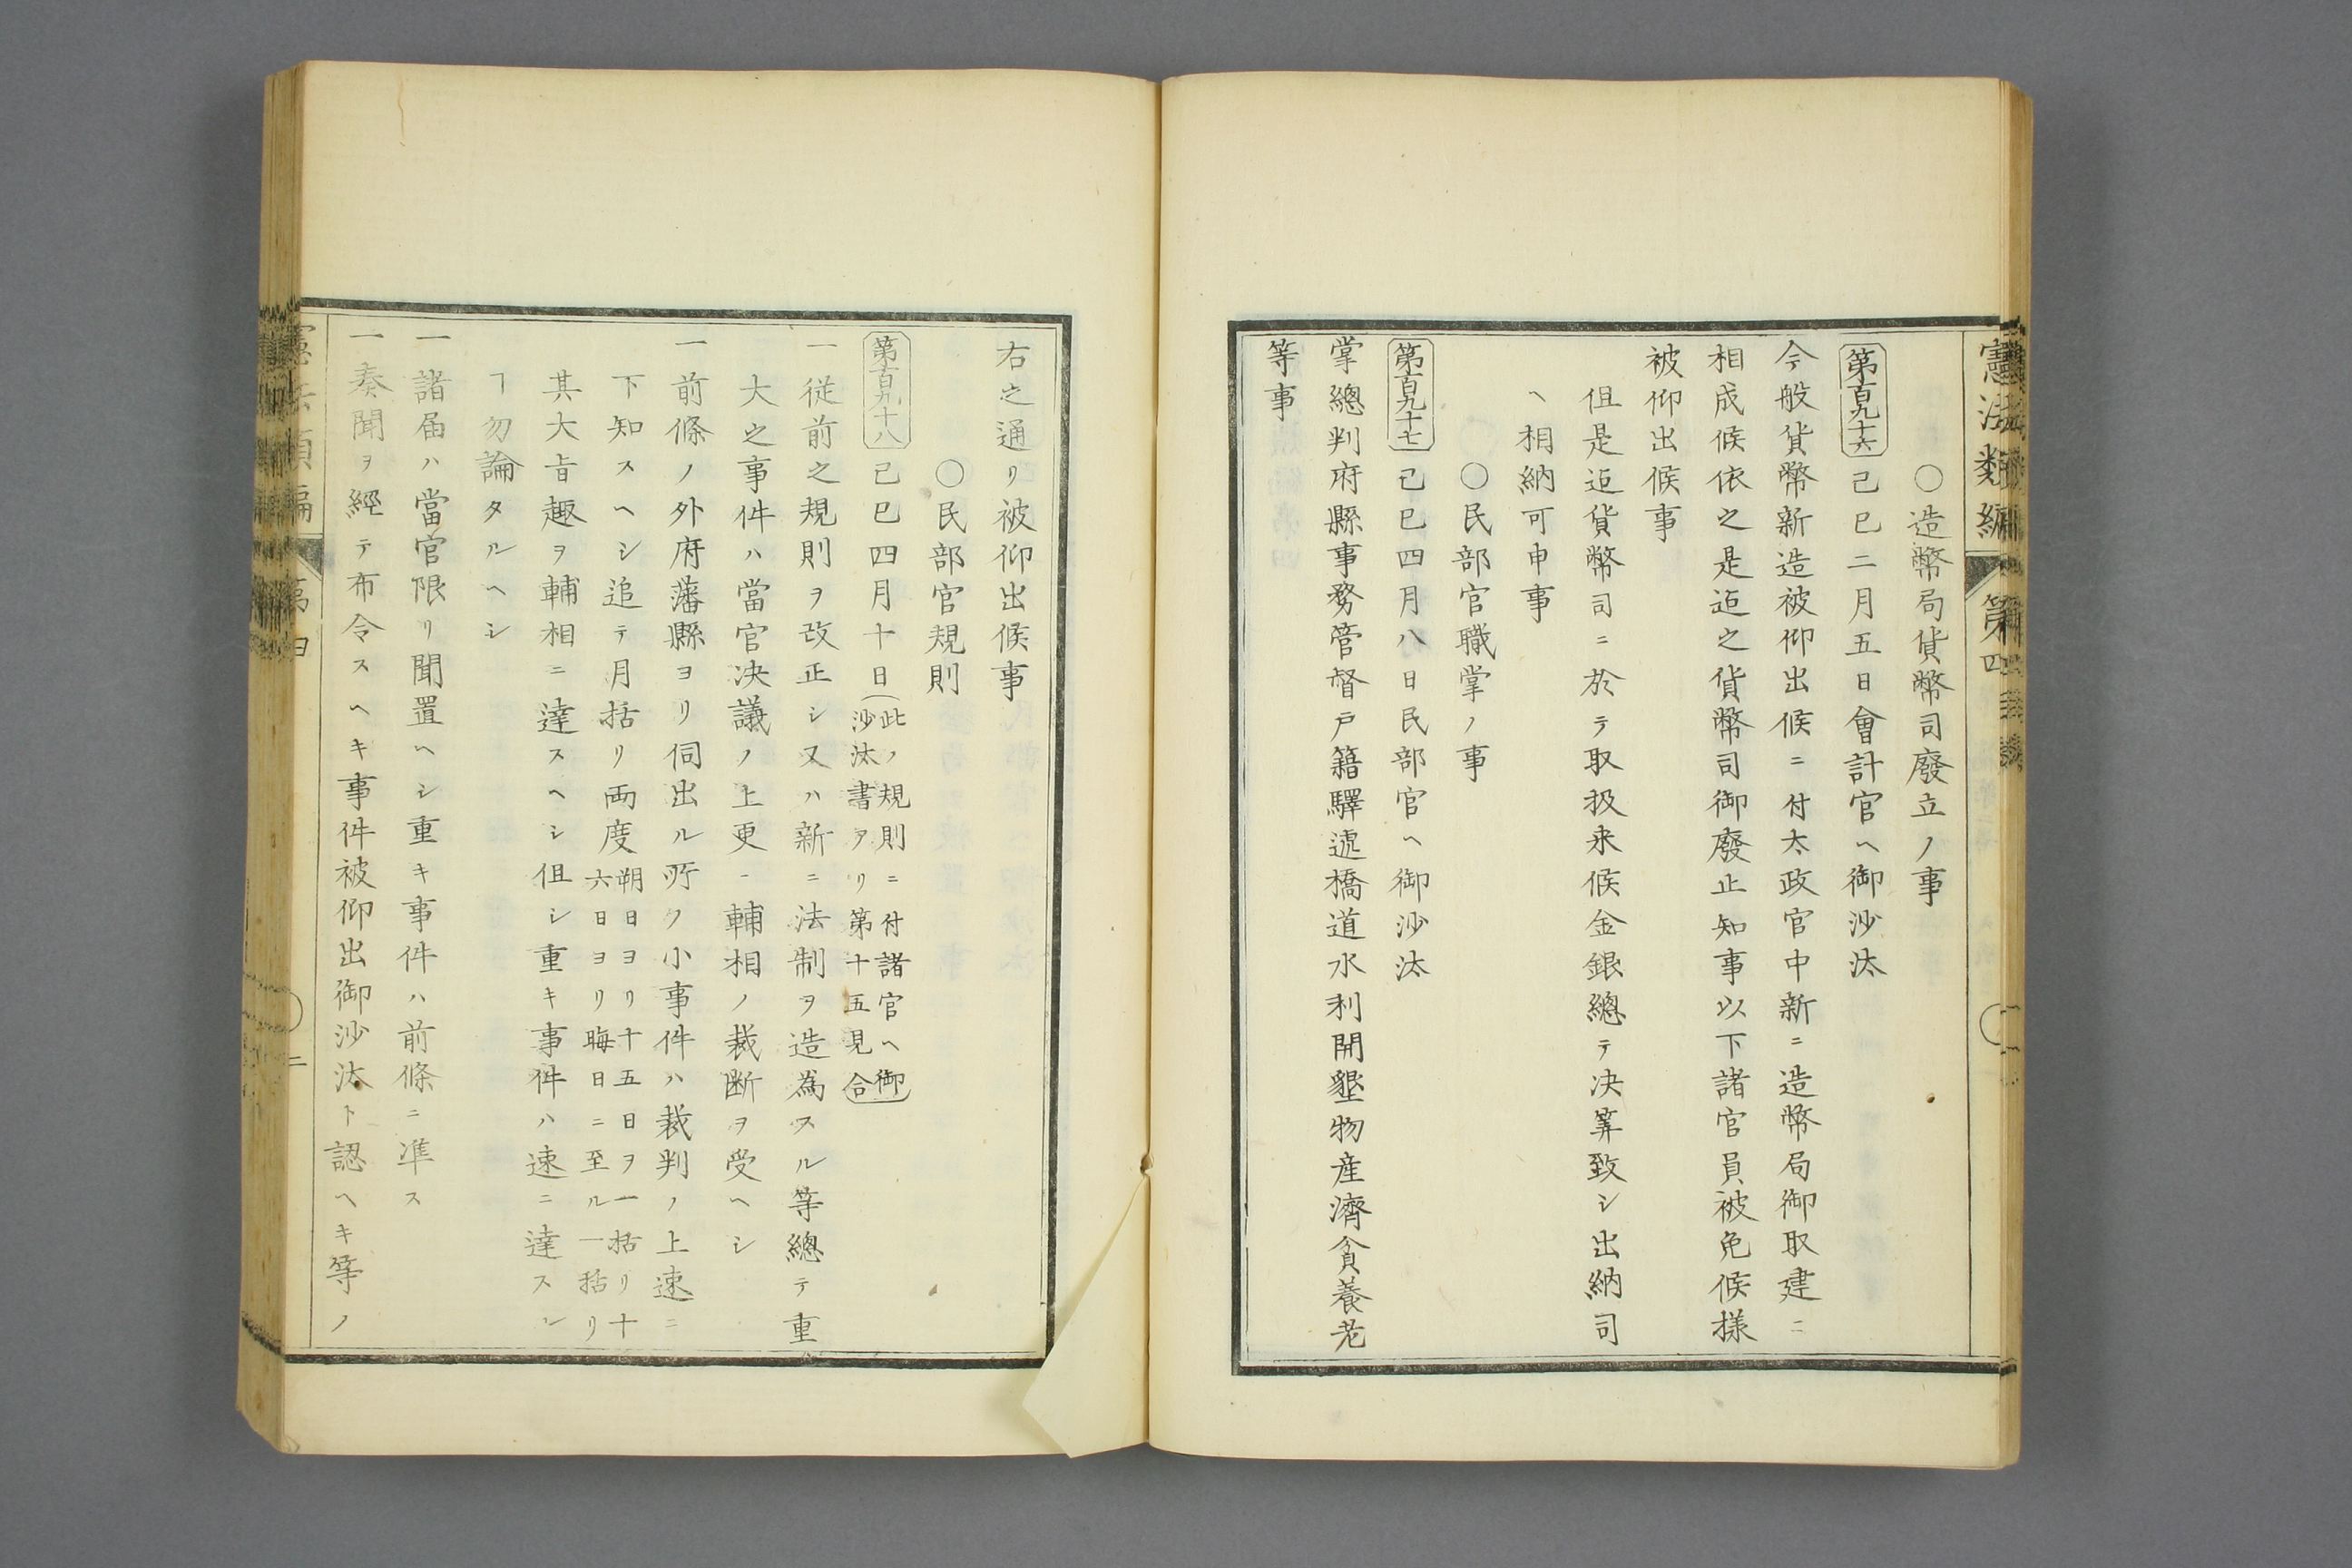 憲法類編 第四
○造幣局貨幣司廢立ノ事
第百九十六 己巳二月五日會計官ヘ御沙汰
今般貨幣新造被仰出候ニ付太政官中新ニ造幣局御取建ニ
相成候依之是迄之貨幣司御廢止知事以下諸官員被免候様
被仰出候事
但是迄貨幣司ニ於テ取扱来候金銀總テ决筭致シ出納司
ヘ相納可申事
○民部官職掌ノ事
第百九十七 己巳四月八日民部官ヘ御沙汰
掌總判府縣事務管督戸籍驛逓橋道水利開墾物産濟貧養老
等事
右之通リ被仰出候事
○民部官規則
第百九十八 己巳四月十日(此ノ規則ニ付諸官ヘ御
沙汰書アリ第十五見合)
一従前之規則ヲ改正シ又ハ新ニ法制ヲ造為スル等總テ重
大之事件ハ當官决議ノ上更ニ輔相ノ裁断ヲ受ヘシ
一前條ノ外府藩縣ヨリ伺出ル所ノ小事件ハ裁判ノ上速ニ
下知スヘシ追テ月括リ両度朔日ヨリ十五日ヲ一括リ十
六日ヨリ晦日ニ至ル一括リ
其大㫖趣ヲ輔相ニ達スヘシ但シ重キ事件ハ速ニ達スル
ヿ勿論タルヘシ
一諸届ハ當官限リ聞置ヘシ重キ事件ハ前條ニ準ス
一奏聞ヲ經テ布令スヘキ事件被仰出御沙汰ト認ヘキ等ノ
憲法類編 第四 二